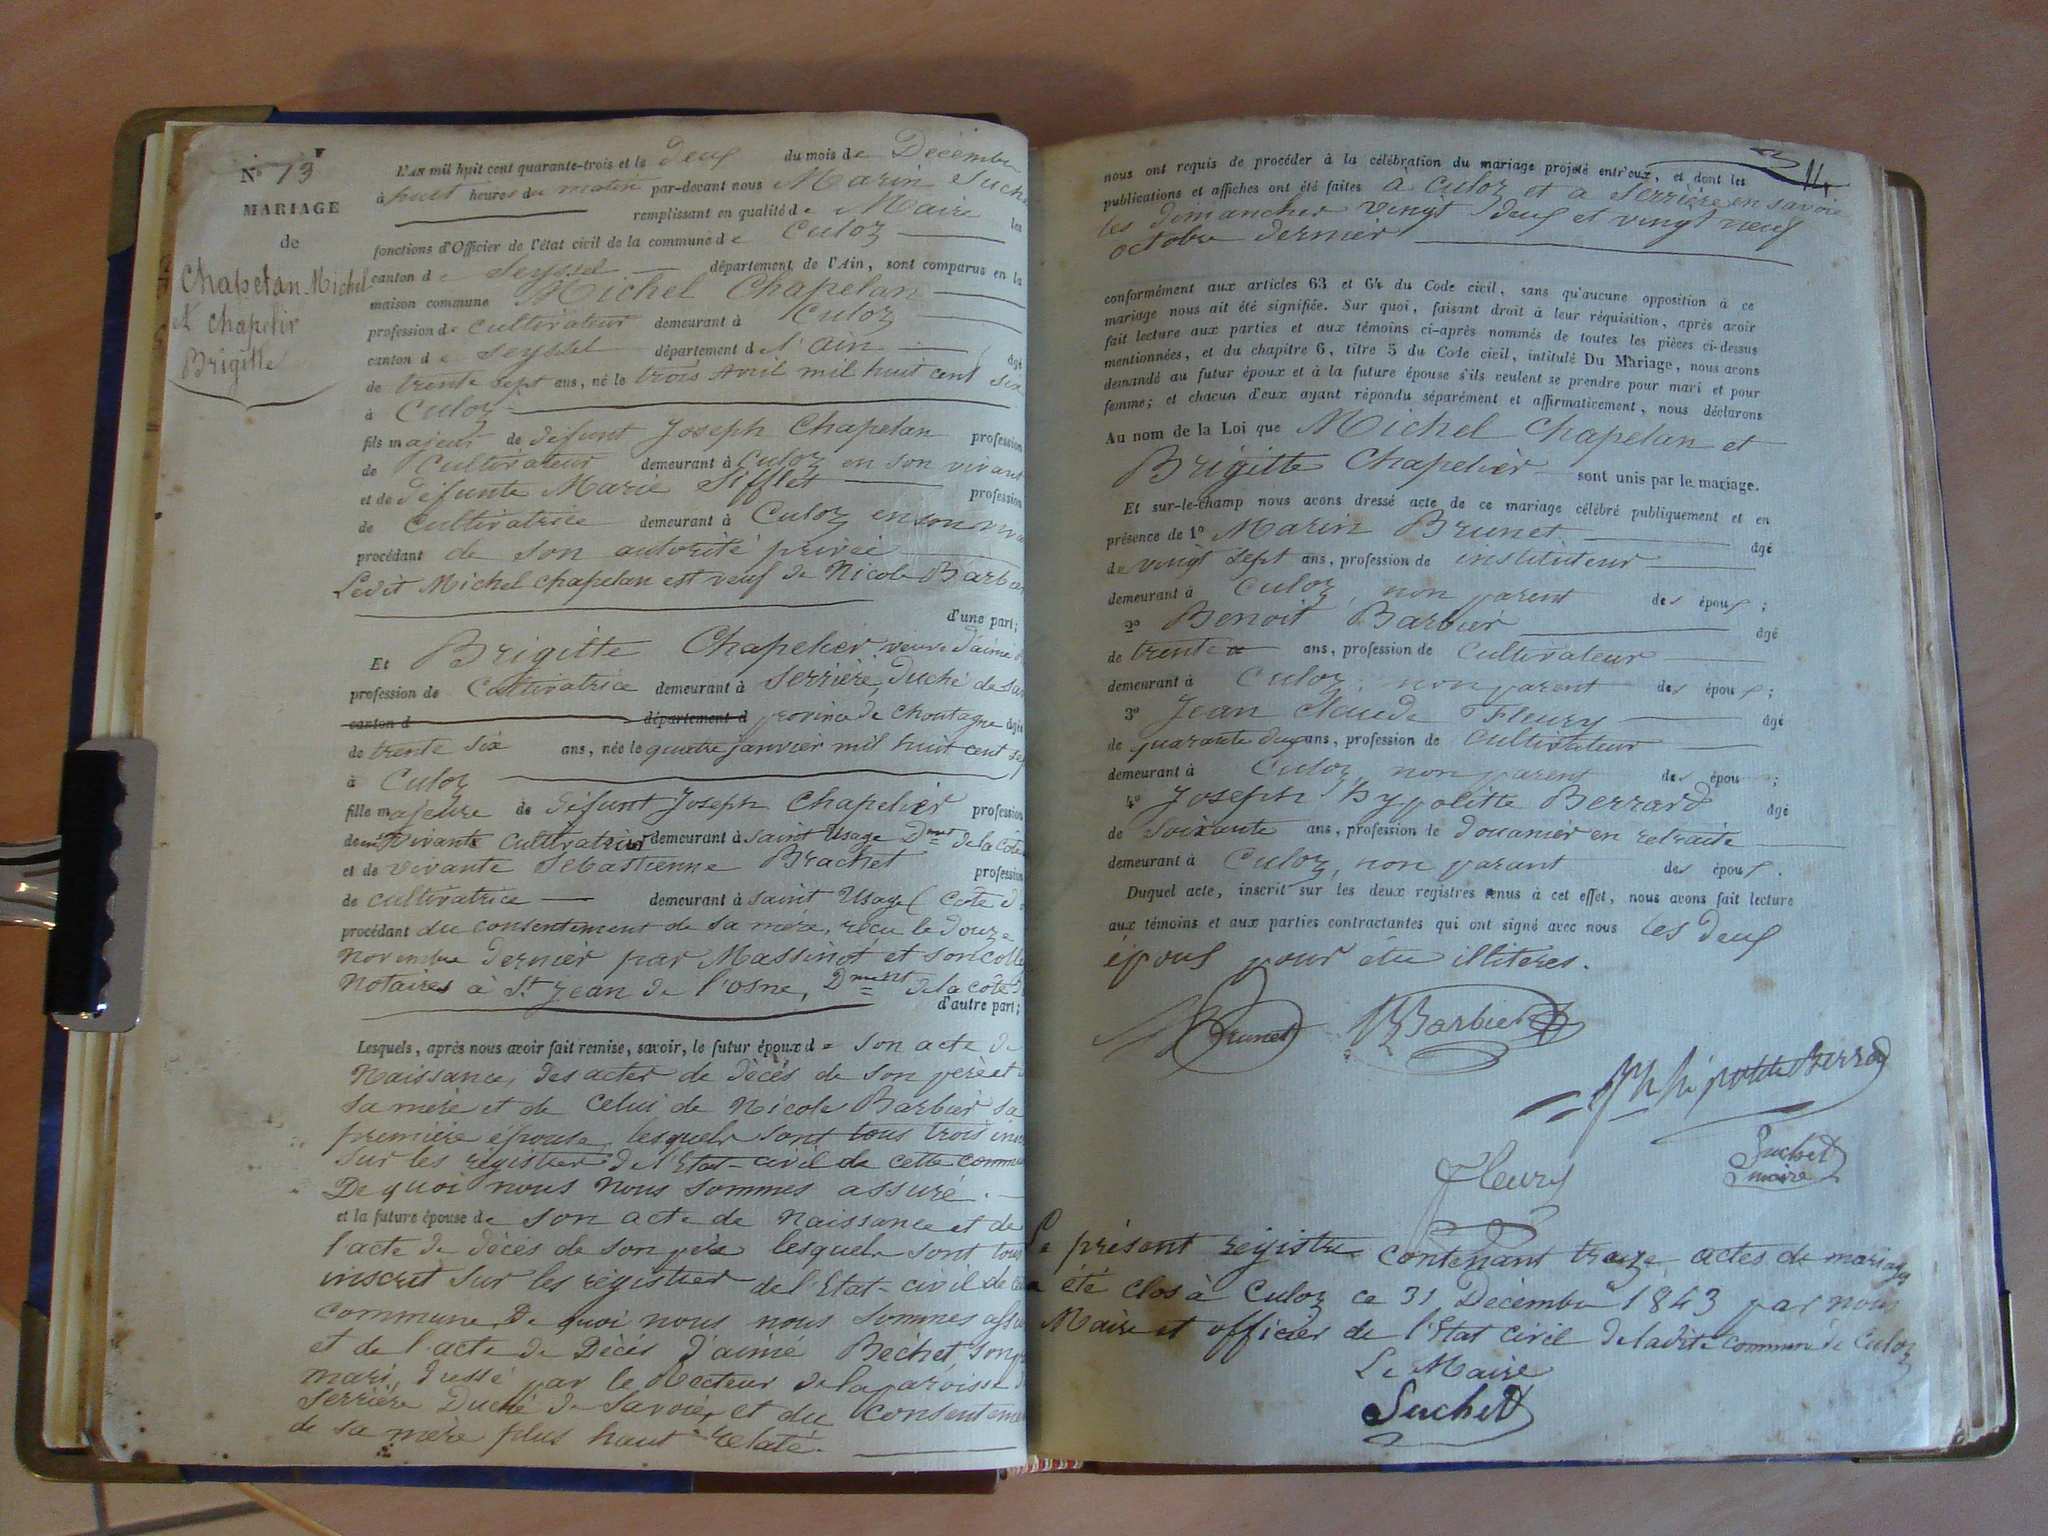 N° 13
MARIAGE
de
Chapelan Michel
et Chapelier
Brigitte
L'AN mil huit cent quarante-trois et le deux du mois de Décembre
à huit heures du matin par-devant nous Marin Suchet
remplissant en qualité de Maire les
fonctions d'Officier de l'état civil de la commune de Culoz
canton de Seyssel département de l'Ain, sont comparus en la
maison commune Michel Chapelan
profession de cultivateur demeurant à Culoz
canton de Seyssel département de l'ain âgé
de trente sept ans, né le trois avril mil huit cent six
à Culoz
fils majeur de défunt Joseph Chapelan profession
de Cultivateur demeurant à Culoz en son vivant
et de défunte Marie Sifflet profession
de Cultivatrice demeurant à Culoz en son viva
procédant de son autorité privée
Ledit Michel Chapelan est veuf de Nicole Barbier
d'une part;
Et Brigitte Chapelier veuve d'aimé
profession de Cultivatrice demeurant à Serrière, Duché de Sav
canton d département d province de Chautagne âgée
de trente six ans, née le quatre janvier mil huit cent sep
à Culoz
fille majeure de défunt Joseph Chapelier profession
de vivante cultivatrice demeurant à Saint Usage Dment de la Côte
et de vivante Sébastienne Brachet profession
de cultivatrice demeurant à Saint Usage (Cote d
procédant du consentement de sa mère, reçu le douze
Novembre dernier par Massinot et son coll
Notaires à St Jean de l'osne, Dment de la côte
d'autre part;
Lesquels, après nous avoir fait remise, savoir, le futur époux de son acte de
Naissance, des actes de décès de son père et
sa mère et de celui de Nicole Barbier sa
première épouse, lesquels sont tous trois ins
sur les registres de l'Etat-civil de cette commu
De quoi nous nous sommes assuré.
et la future épouse de son acte de naissance et de
l'acte de décès de son père lesquels sont tous
inscrit sur les régistres de l'Etat-civil de
commune, De quoi nous nous sommes assu
et de l'acte de Décès d'aimé Béchet, son
mari, dressé par le Recteur de la paroisse
Serrière Duché de Savoie, et du consenteme
de sa mère plus haut relaté.
14
nous ont requis de procéder à la célébration du mariage projeté entr'eux, et dont les
publications et affiches ont été faites à Culoz et a Serrière en Savoie
les dimanches vingt deux et vingt neuf
octobre dernier
conformément aux articles 63 et 64 du Code civil, sans qu'aucune opposition à ce
mariage nous ait été signifiée. Sur quoi, faisant droit à leur réquisition, après avoir
fait lecture aux parties et aux témoins ci-après nommés de toutes les pièces ci-dessus
mentionnées, et du chapitre 6, titre 5 du Code civil, intitulé Du Mariage, nous avons
demandé au futur époux et à la future épouse s'ils veulent se prendre pour mari et pour
femme; et chacun d'eux ayant répondu séparément et affirmativement, nous déclarons
Au nom de la Loi que Michel Chapelan et
Brigitte Chapelier sont unis par le mariage.
Et sur-le-champ nous avons dressé acte de ce mariage célébré publiquement et en
présence de 1° Marin Brunet âgé
de vingt sept ans, profession de instituteur
demeurant à Culoz, non parent des époux;
2° Benoit Barbier âgé
de trente ans, profession de Cultivateur
demeurant à Culoz, non parent des époux;
3° Jean Claude Fleury âgé
de quarante deux ans, profession de Cultivateur
demeurant à Culoz, non parent des époux;
4° Joseph hypolitte Berrard âgé
de soixante ans, profession de douanier en retraite
demeurant à Culoz, non parant des époux.
Duquel acte, inscrit sur les deux registres tenus à cet effet, nous avons fait lecture
aux témoins et aux parties contractantes qui ont signé avec nous les deux
époux pour être illiterés.
Brunet Barbier
Fleury
Suchet
maire
Le présent registre contenant treize actes de mariage
a été clos à Culoz ce 31 Décembre 1843 par nous
Maire et officier de l'Etat civil de ladite commune de Culoz
Le Maire
Suchet